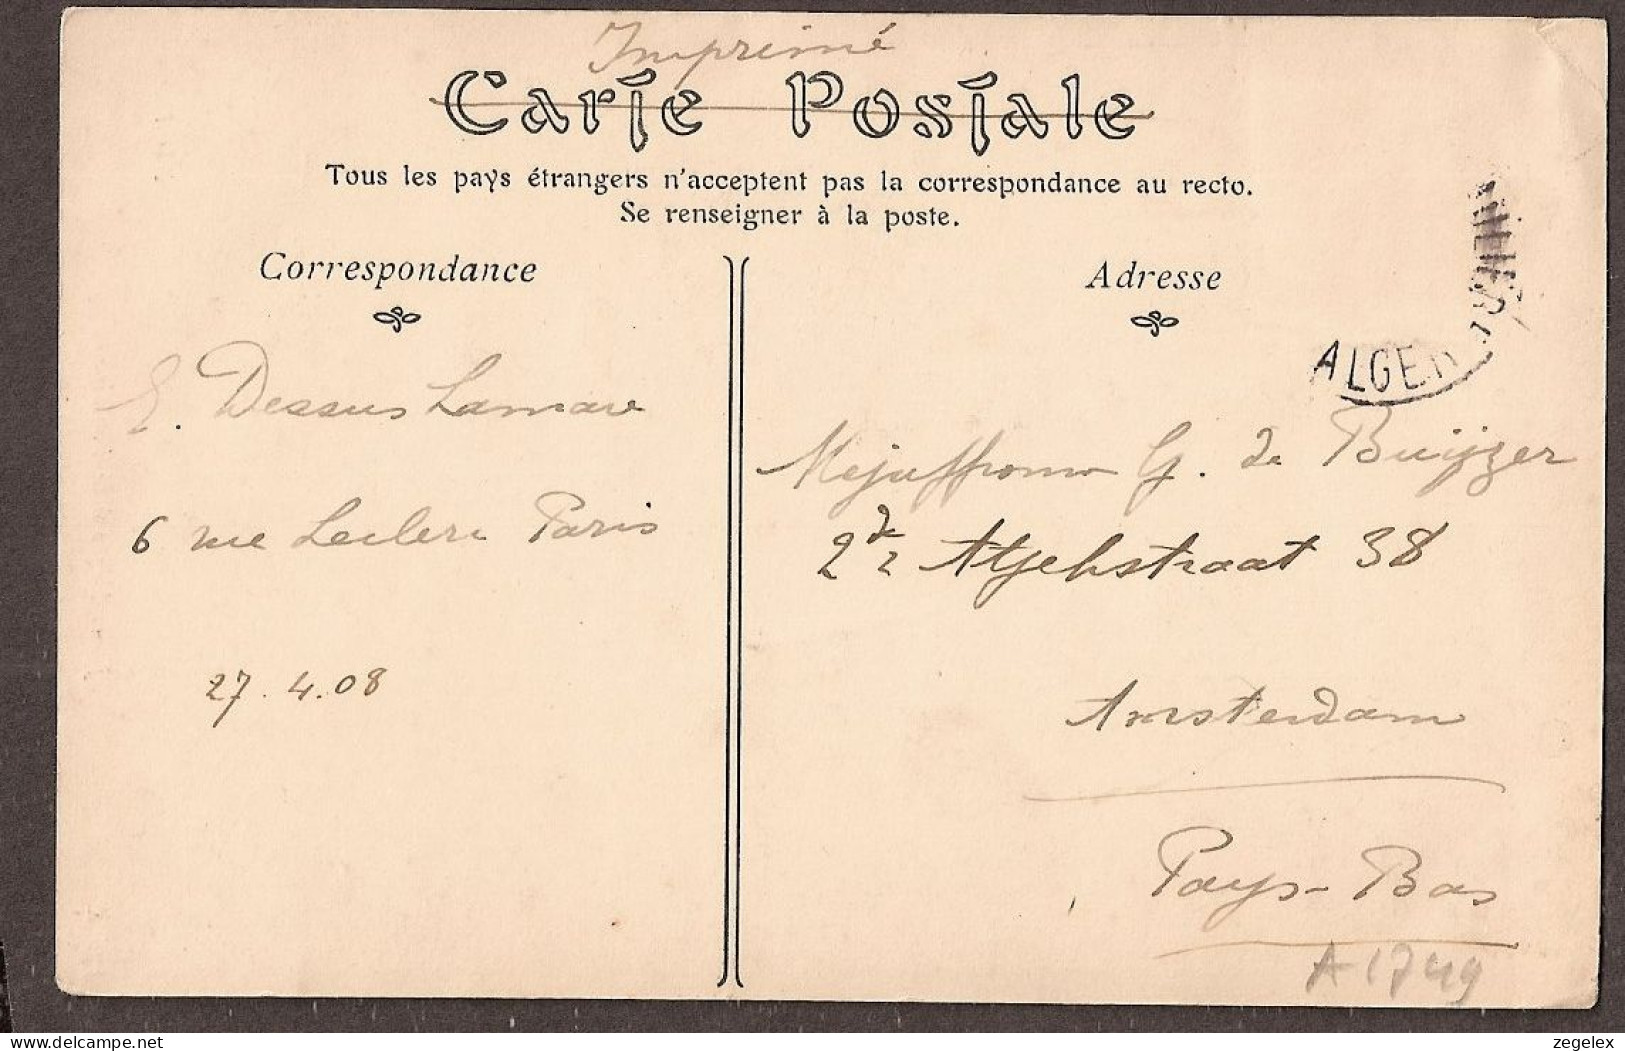 Imprimé
Carte Postale
Tous les pays étrangers n'acceptent pas la correspondance au recto.
Se renseigner à la poste.
Correspondance
E. Dessus Lamare
6 rue Leclerc Paris
27.4.08
Adresse
ALGER
Mejuffrouw G. de Buijzer
2de Atjehstraat 38
Amsterdam
Pays-Bas
A1749
delcampe.net
zegelex